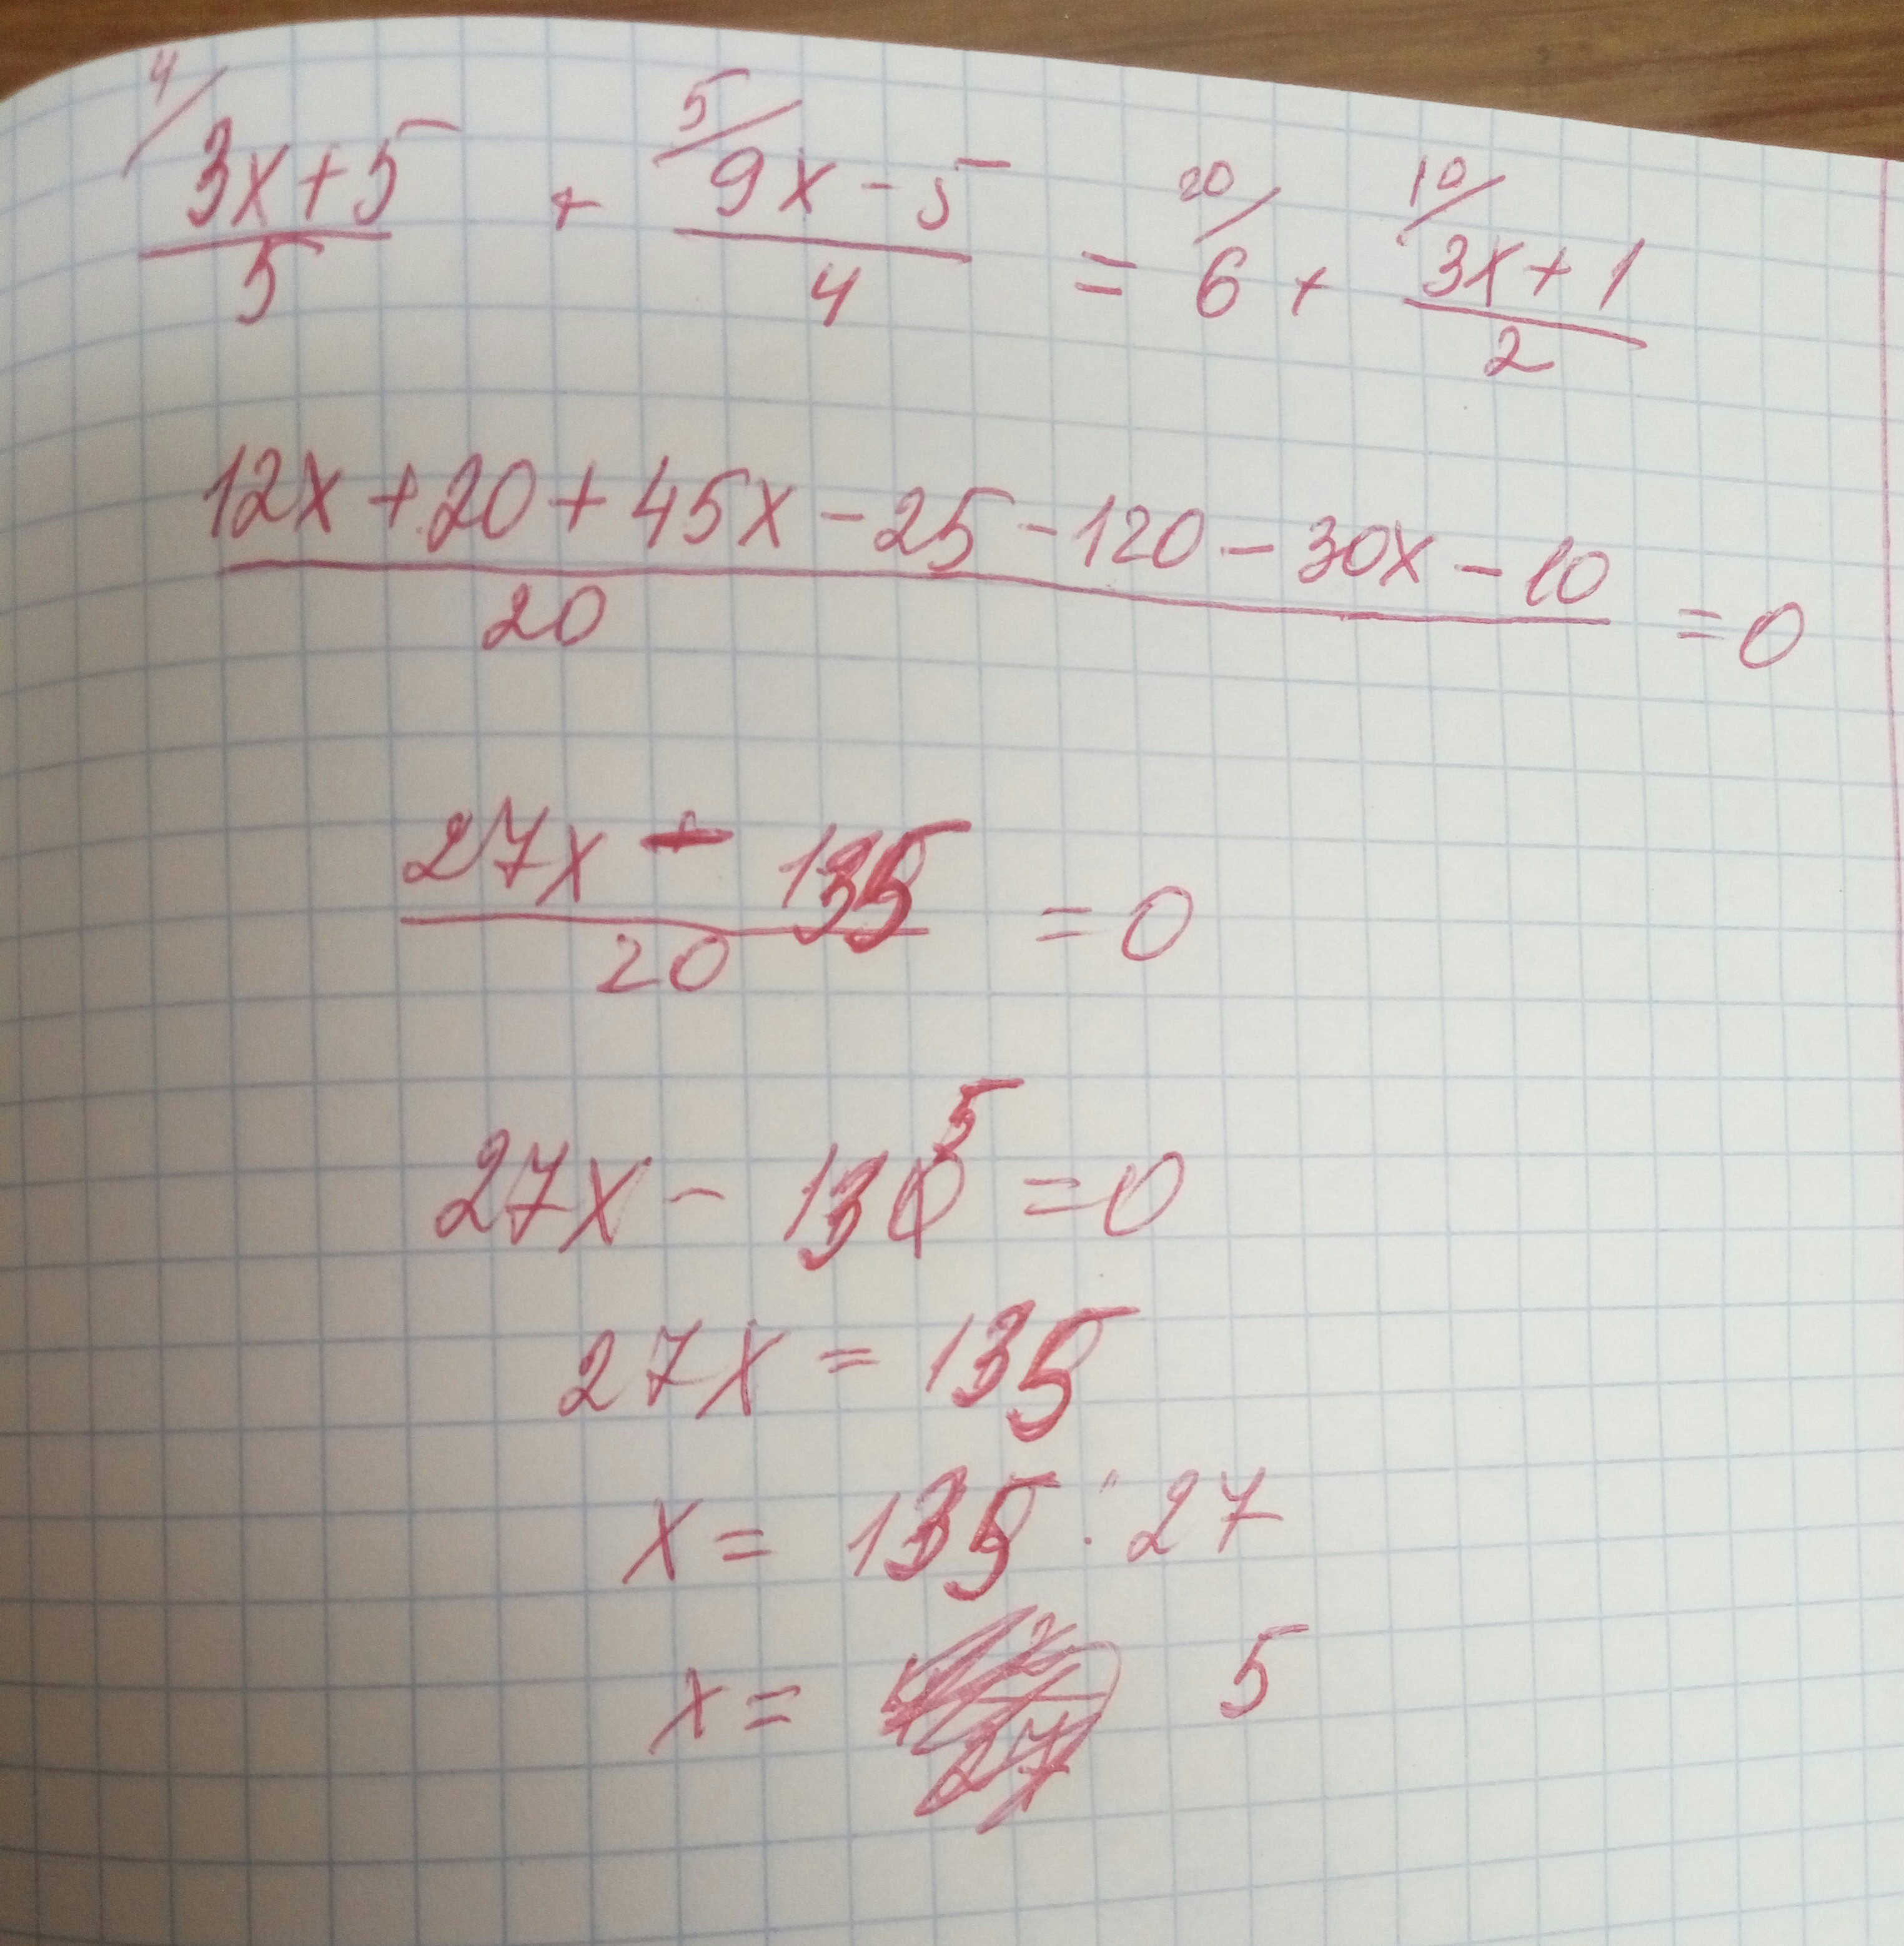 4/ 3x+5 / 5 + 5/ 9x-5 / 4 = 20/ 6 + 10/ 3x+1 / 2
12x+20+45x-25-120-30x-10 / 20 =0
27x - 135 / 20 =0
27x - 135 =0
27x = 135
x = 135 : 27
x = 5